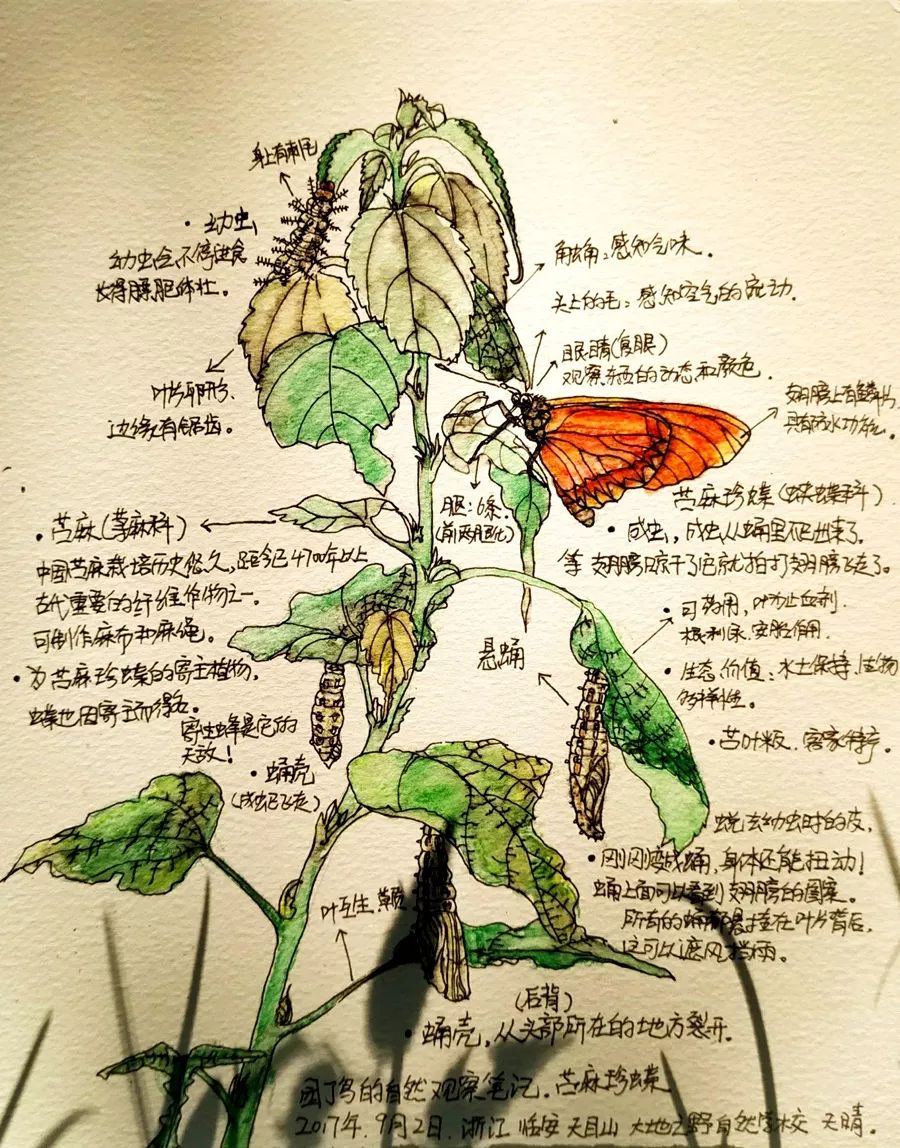 身上有刺毛
• 幼虫,
幼虫会不停进食
长得膘肥体壮。
触角:感知气味.
头上的毛:感知空气的流动.
眼睛(复眼)
观察东西的动态和颜色.
翅膀上有鳞片,
具有防水功能。
叶片卵形,
边缘有锯齿。
腿:6条.
(前两退化)
苎麻珍蝶(蛱蝶科)
• 成虫,成虫从蛹里爬出来了.
等 翅膀晾干了它就拍打翅膀飞走了。
• 苎麻(荨麻科)
中国苎麻栽培历史悠久,距今已4700年以上
古代重要的纤维作物之一.
可制作麻布和麻绳。
• 为苎麻珍蝶的寄主植物,
蝶也因寄主而得名。
寄生蜂是它的
天敌!
• 蛹壳
(成虫已飞走)
悬蛹
• 可药用,叶为止血剂.
根利尿,安胎作用.
• 生态价值:水土保持,生物
多样性。
• 苎叶粄.客家特产.
蜕去幼虫时的皮,
• 刚刚变成蛹,身体还能扭动!
蛹上面可以看到翅膀的图案。
所有的蛹都悬挂在叶片背后,
这可以遮风挡雨。
叶互生,
(后背)
• 蛹壳,从头部所在的地方裂开.
园丁鸟的自然观察笔记.苎麻珍蝶
2017年.9月2日.浙江 临安 天目山 大地之野自然学校 天晴.